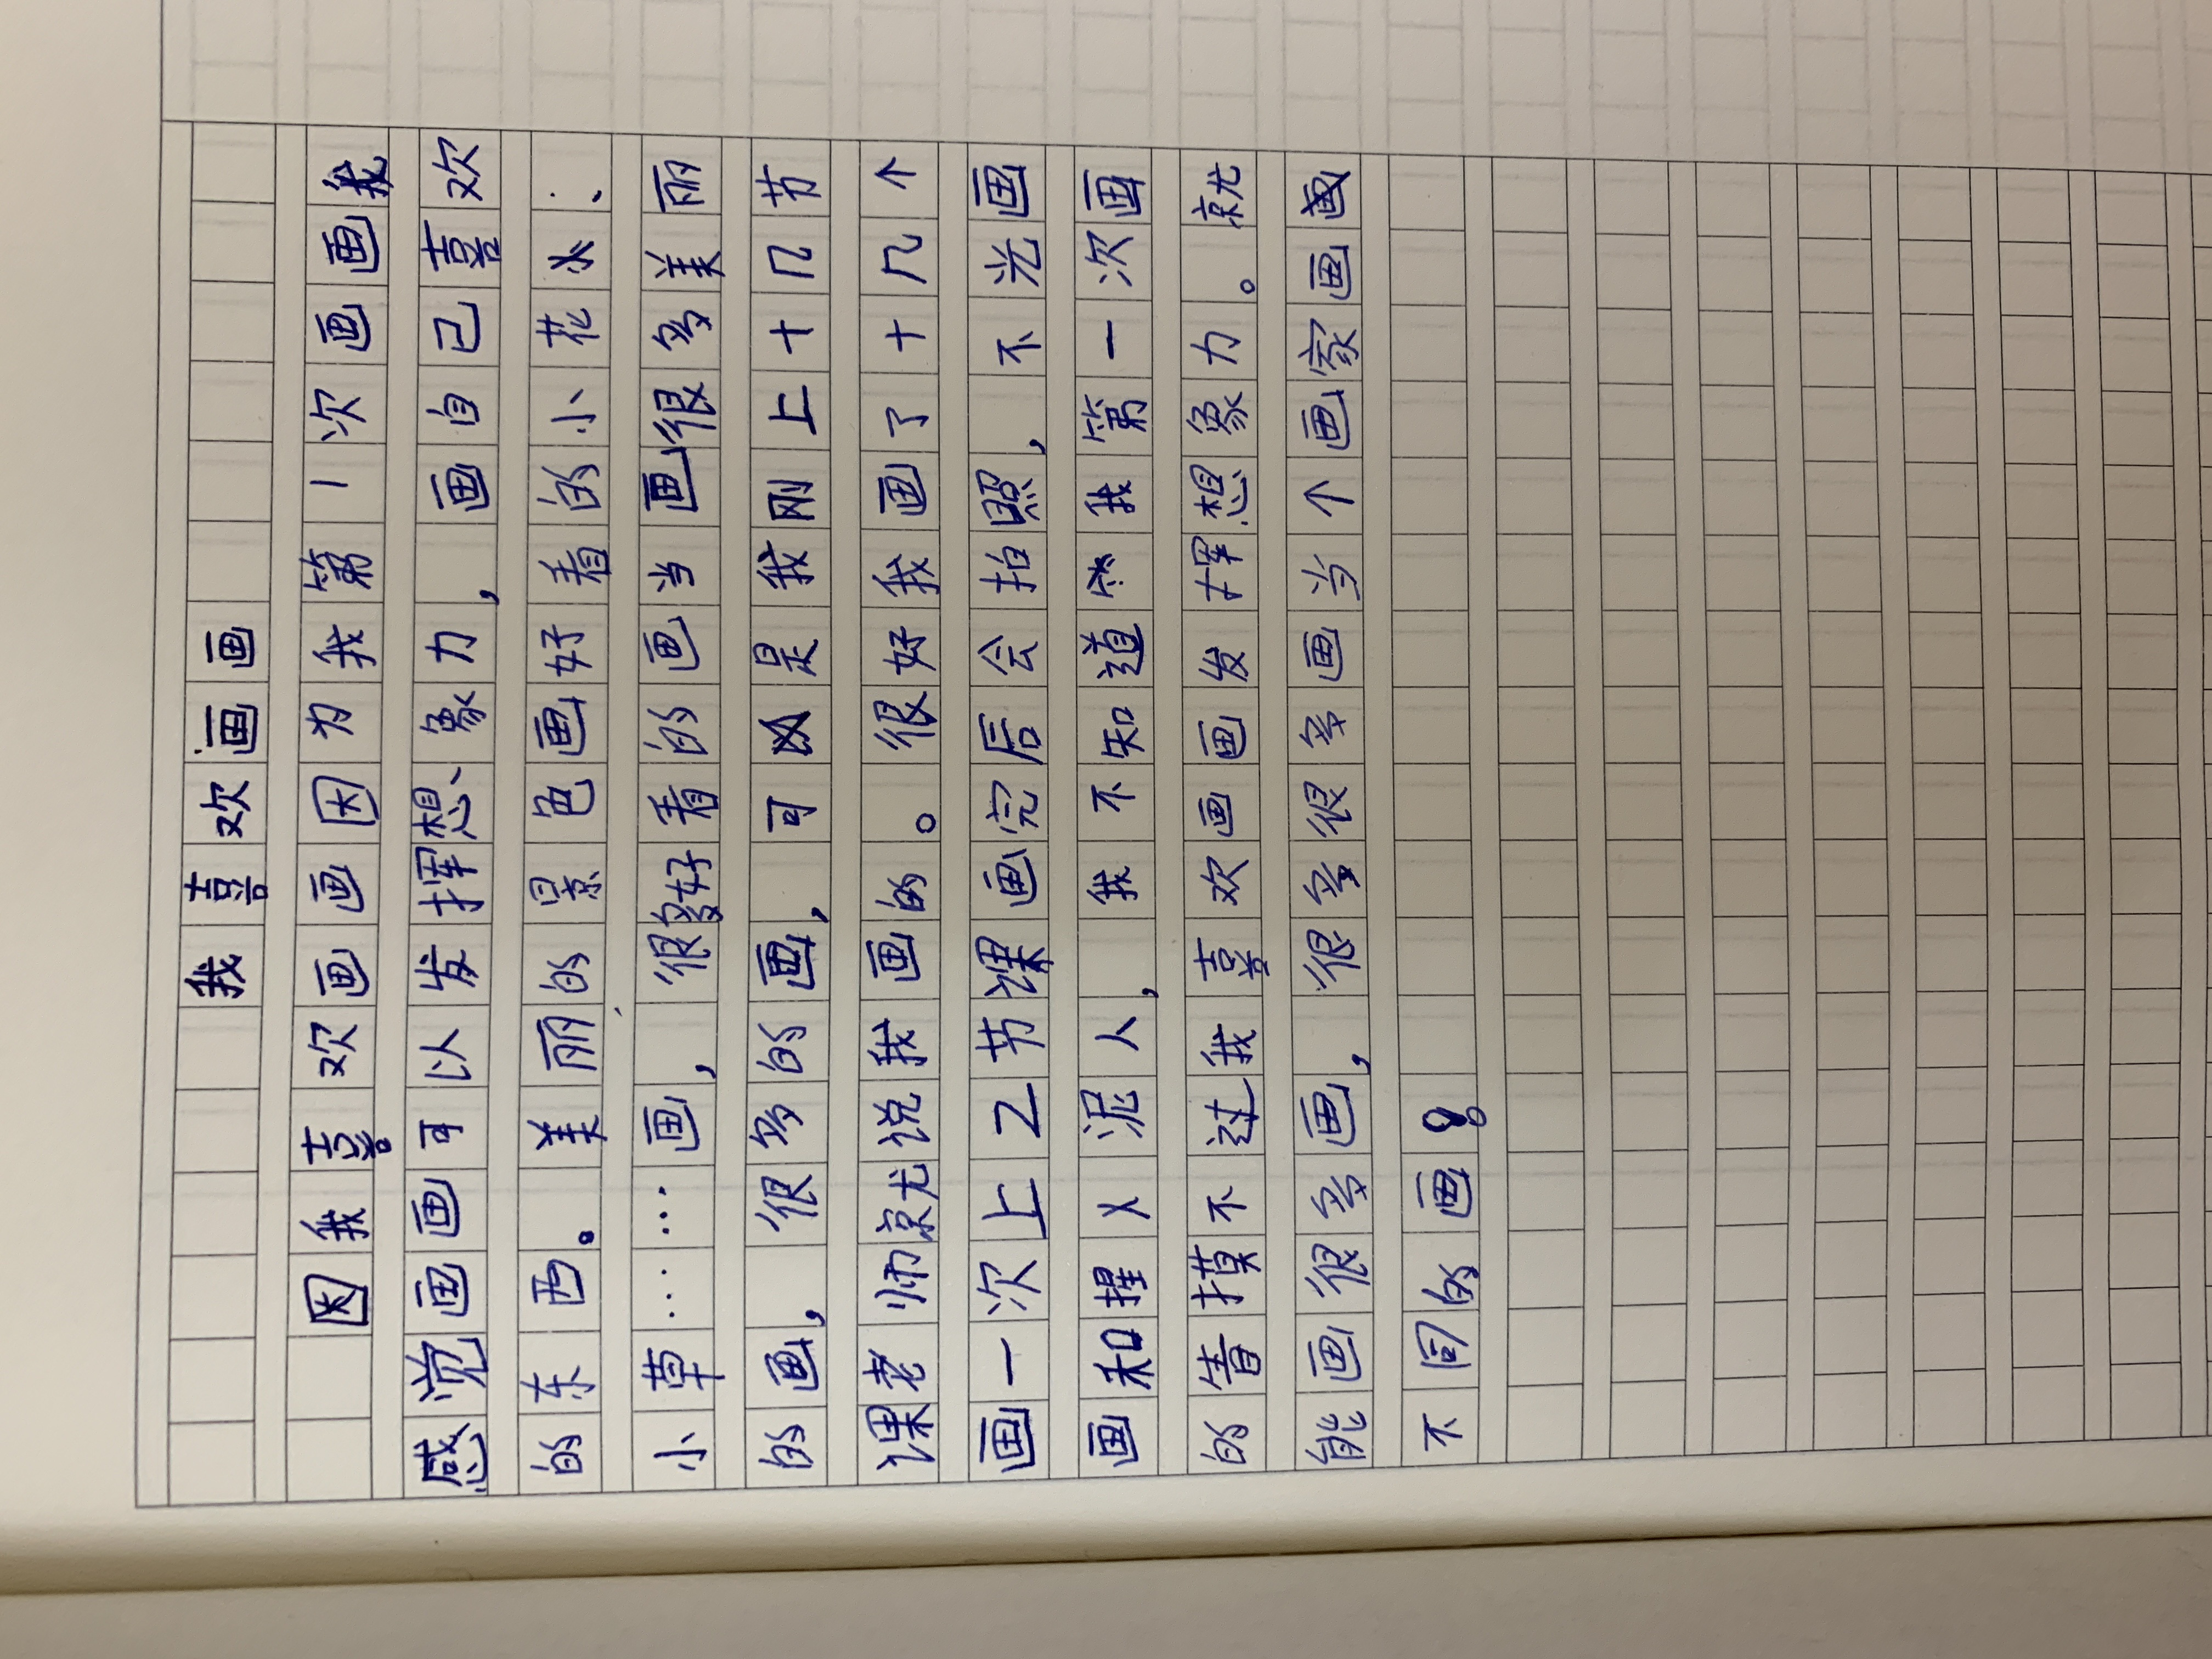 我喜欢画画
因我喜欢画画因为我第一次画画我
感觉画画可以发挥想象力，画自己喜欢
的东西。美丽的景色画好看的小花、
小草……画，很多好看的画当画很多美丽
的画，很多的画，可是我刚上十几节
课老师就说我画的。很好我画了十几个
画一次上2节课画完后会拍照，不光画
画和捏泥人，我不知道我第一次画
的摸不过我喜欢画画发挥想象力。就
能画很多画，很多很多画当个画家画
不同的画！